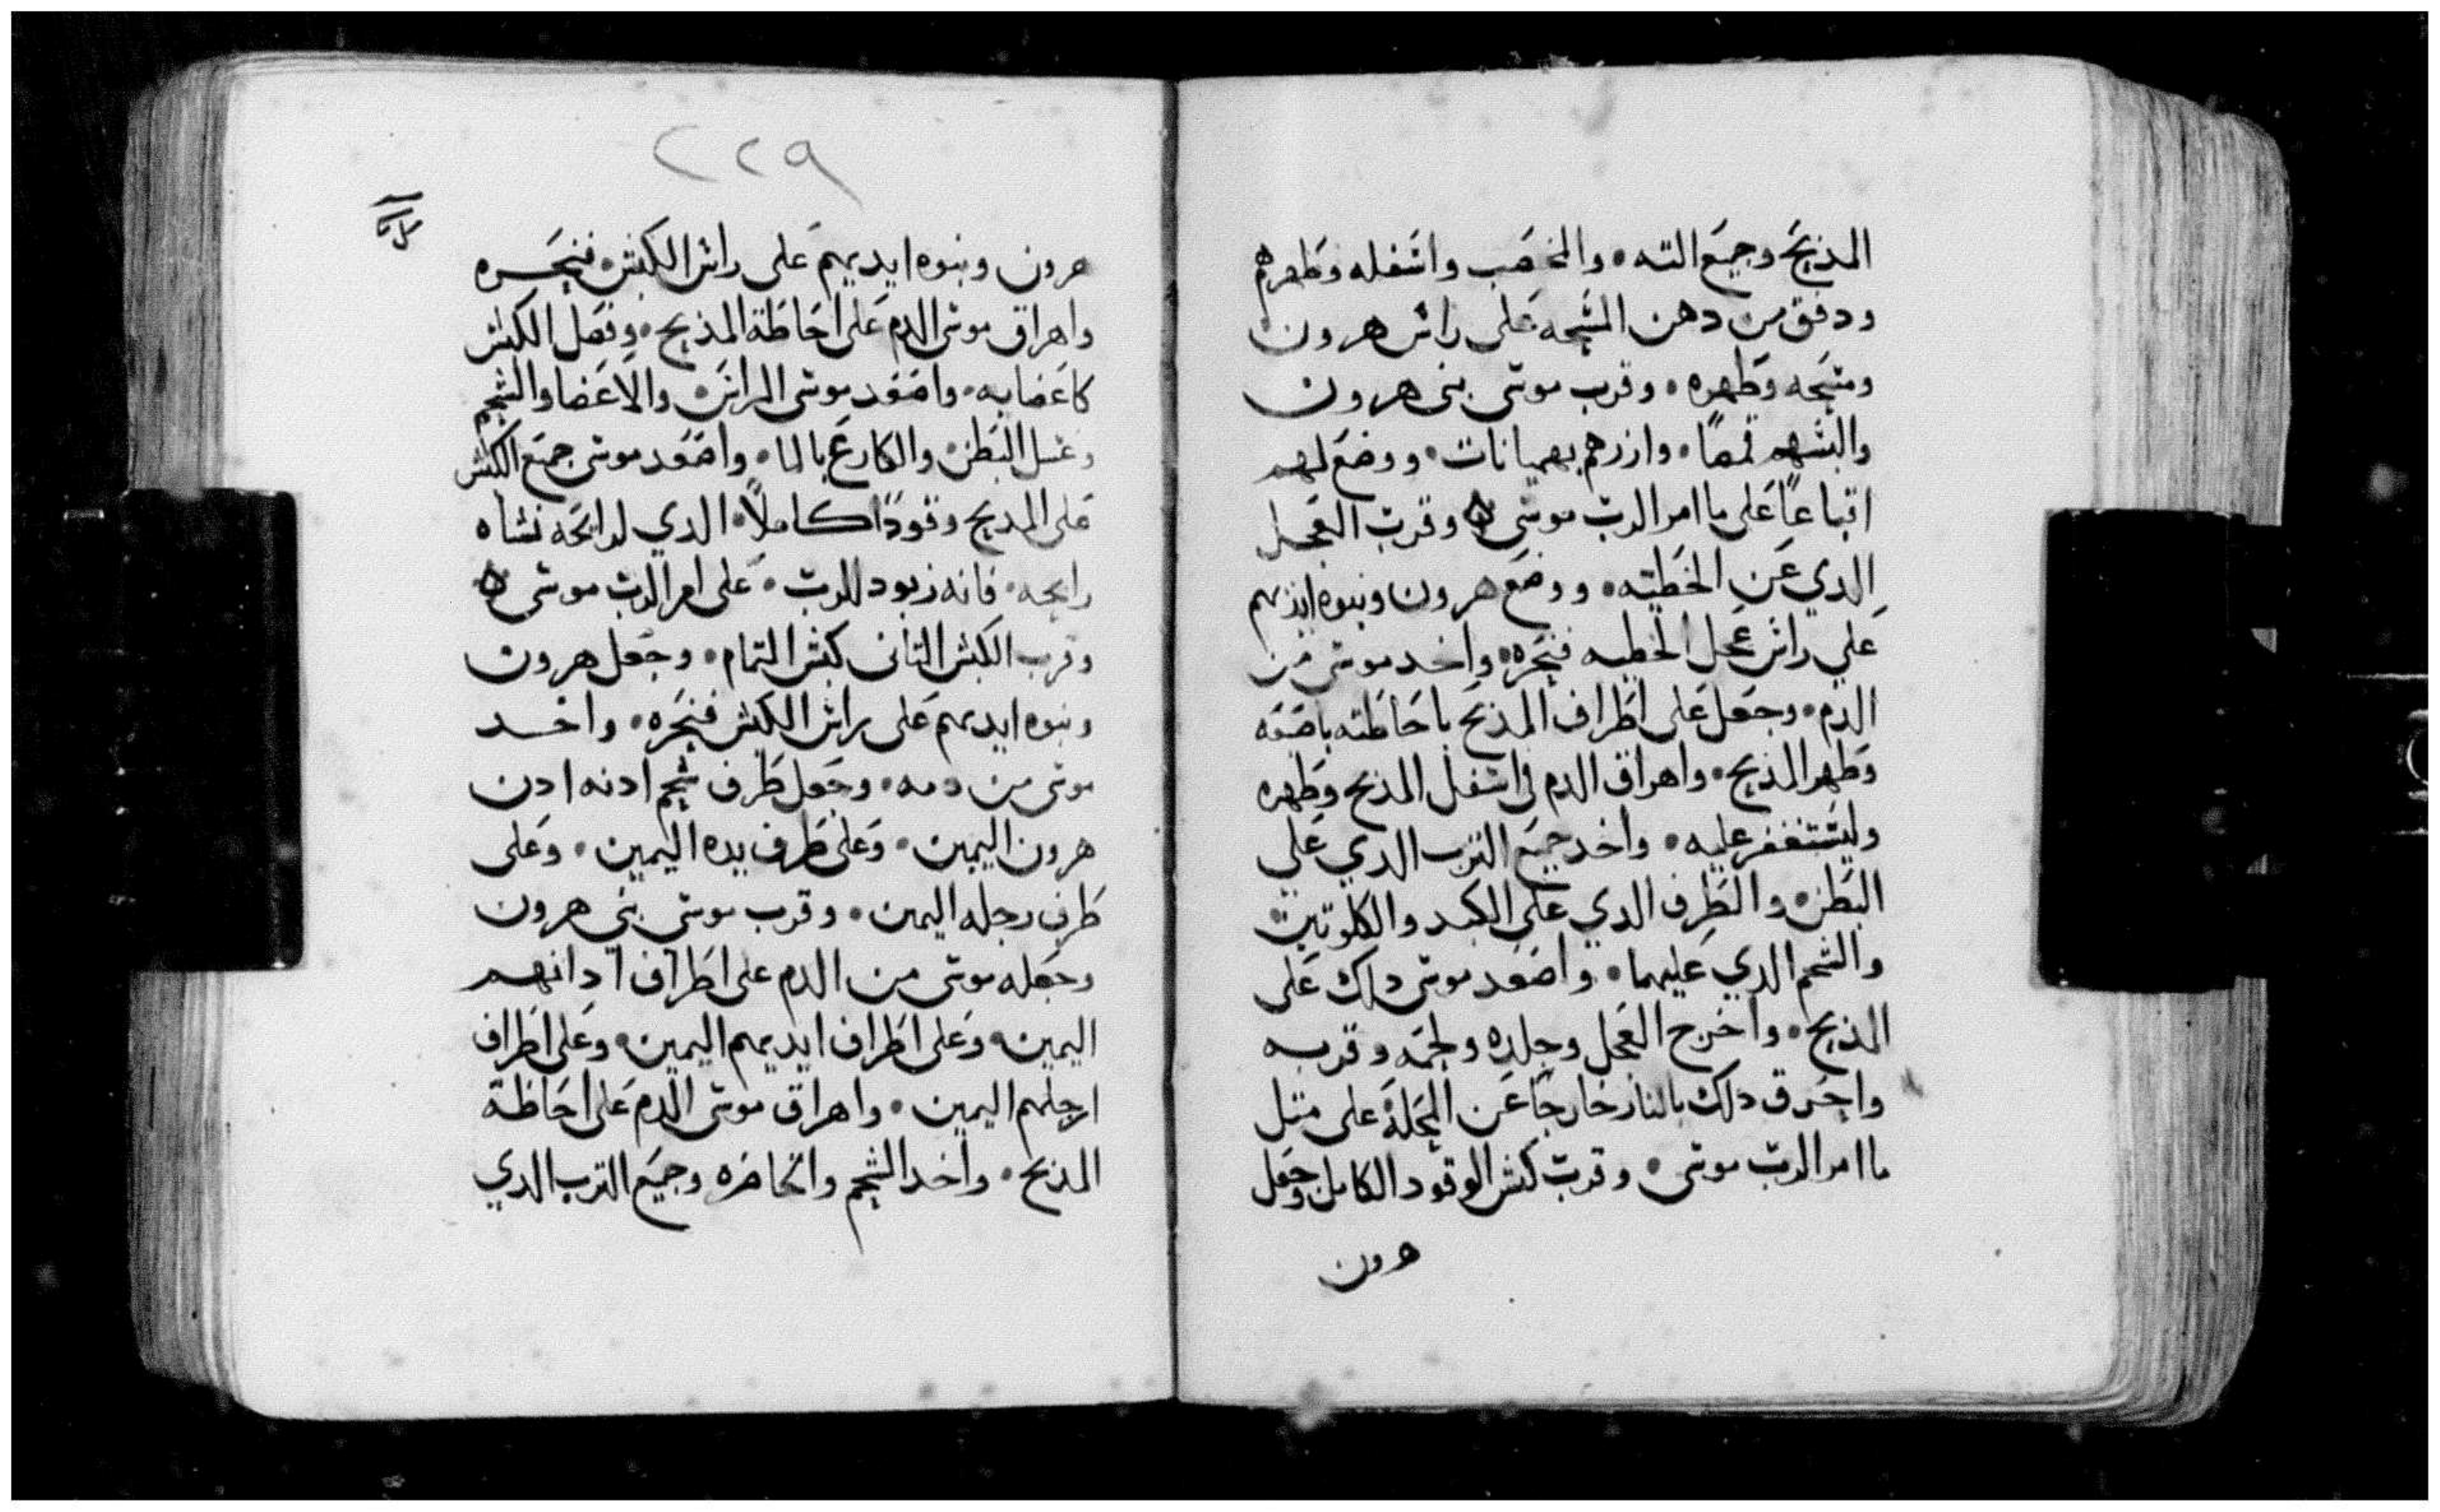 المذبح وجميع الته. والمخضب واشفله وطهرهم
ودفق من دهن المشحه على راش هرون
ومشحه وطهره. وقرب موشى بنى هرون
والبشهم قمصًا. وازرهم بهميانات. ووضع لهم
اتباعًا على ما امر الرب موشى ه وقرب العجل
الدي عن الخطيه. ووضع هرون وبنوه ايديهم
علي راش عجل الخطيه فنحره. واخد موشى من
الدم. وجعل على اطراف المذبح باحاطته باصبعه
وطهر المذبح. واهراق الدم فى اشفل المذبح وطهره
وليشتغفر عليه. واخد جميع الترب الدي علي
البطن. والطرف الدي على الكبد والكلوتين
والشحم الدي عليهما. واصعد موشى دلك على
المذبح. واخرج العجل وجلده ولحمه وقربه
واحرق دلك بالنار خارجًا عن المحلة على متل
ما امر الرب موشى. وقرب كبش الوقود الكامل وجعل
هرون
٢٢٩
هرون وبنوه ايديهم على راش الكبش. فنحره
واهراق موشى الدم على احاطة المذبح. وفصل الكبش
كاعضايه. واصعد موشى الراش والاعضا والشحم
وغسل البطن. والاكارع بالما. واصعد موشى جميع الكبش
على المدبح وقودًا كاملاً. الدي لرايحه نشاه
رايحه. فانه زبود للرب. على امر الرب موشى ه
وقرب الكبش التانى كبش التمام. وجعل هرون
وبنوه ايديهم على راش الكبش فنحره. واخد
موشى من دمه. وجعل طرف شحم ادنه ادن
هرون اليمين. وعلى طرف يده اليمين. وعلى
طرف رجله اليمين. وقرب موشى بني هرون
وجعله موشى من الدم على اطراف ادانهم
اليمين. وعلى اطراف ايديهم اليمين. وعلى اطراف
ارجلهم اليمين. واهراق موشى الدم على احاطة
المذبح. واخد الشحم والخاصره وجميع الترب الدي